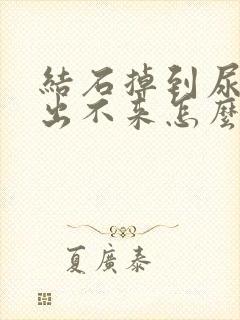 結石掉到尿
出不来怎麼
夏廣泰